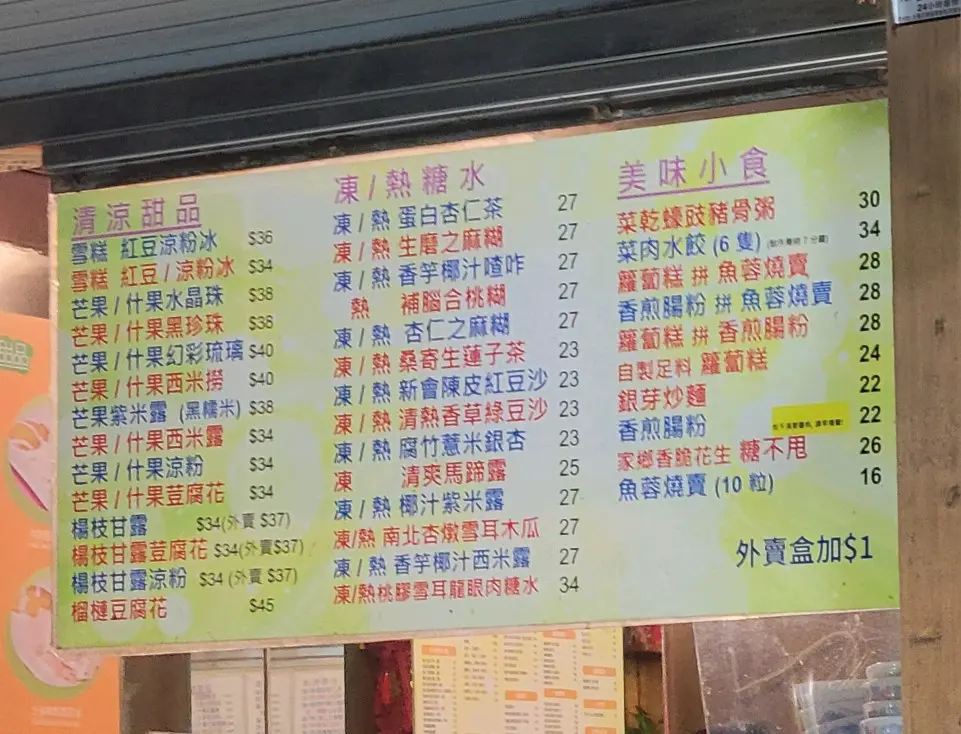 24小時
清涼甜品
雪糕 紅豆涼粉冰 $36
雪糕 紅豆/涼粉冰 $34
芒果/什果水晶珠 $38
芒果/什果黑珍珠 $38
芒果/什果幻彩琉璃 $40
芒果/什果西米撈 $40
芒果紫米露 (黑糯米) $38
芒果/什果西米露 $34
芒果/什果涼粉 $34
芒果/什果荳腐花 $34
楊枝甘露 $34(外賣 $37)
楊枝甘露荳腐花 $34(外賣$37)
楊枝甘露涼粉 $34 (外賣 $37)
榴槤豆腐花 $45
凍/熱糖水
凍/熱 蛋白杏仁茶 27
凍/熱 生磨之麻糊 27
凍/熱 香芋椰汁喳咋 27
熱 補腦合桃糊 27
凍/熱 杏仁之麻糊 27
凍/熱 桑寄生蓮子茶 23
凍/熱 新會陳皮紅豆沙 23
凍/熱 清熱香草綠豆沙 23
凍/熱 腐竹薏米銀杏 23
凍 清爽馬蹄露 25
凍/熱 椰汁紫米露 27
凍/熱 南北杏燉雪耳木瓜 27
凍/熱 香芋椰汁西米露 27
凍/熱桃膠雪耳龍眼肉糖水 34
美味小食
菜乾蠔豉豬骨粥 30
菜肉水餃 (6 隻) 34
蘿蔔糕 拼 魚蓉燒賣 28
香煎腸粉 拼 魚蓉燒賣 28
蘿蔔糕 拼 香煎腸粉 28
自製足料 蘿蔔糕 24
銀芽炒麵 22
香煎腸粉 22
家鄉香脆花生 糖不甩 26
魚蓉燒賣 (10 粒) 16
外賣盒加$1